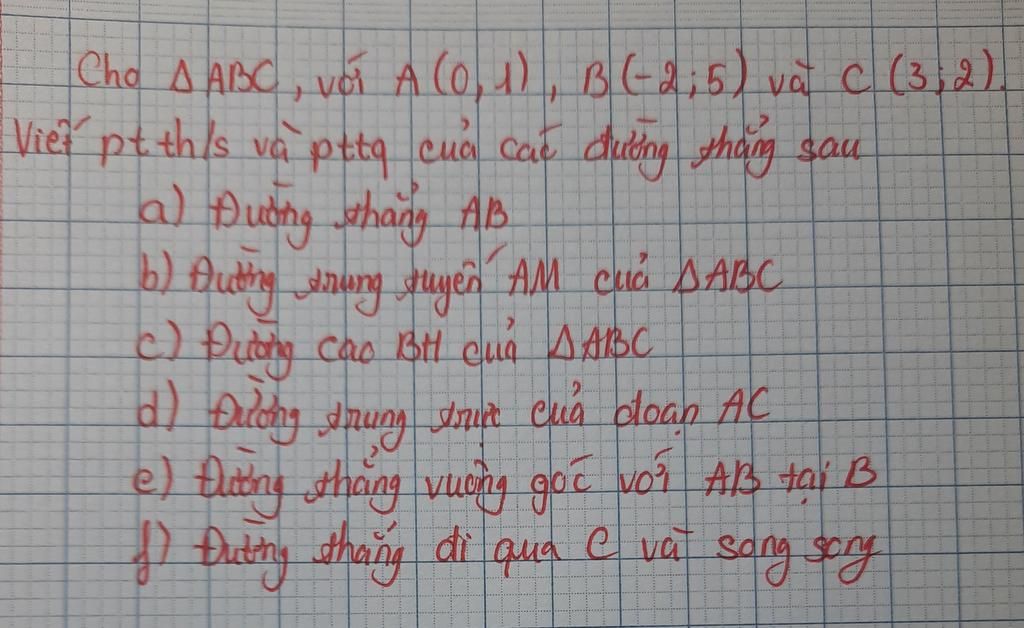 Cho Δ ABC, với A (0, 1), B (-2; 5) và C (3; 2).
Viết pt th/s và pttq của các đường thẳng sau
a) Đường thẳng AB
b) Đường trung tuyến AM của Δ ABC
c) Đường cao BH của Δ ABC
d) Đường trung trực của đoạn AC
e) Đường thẳng vuông góc với AB tại B
f) Đường thẳng đi qua C và song song